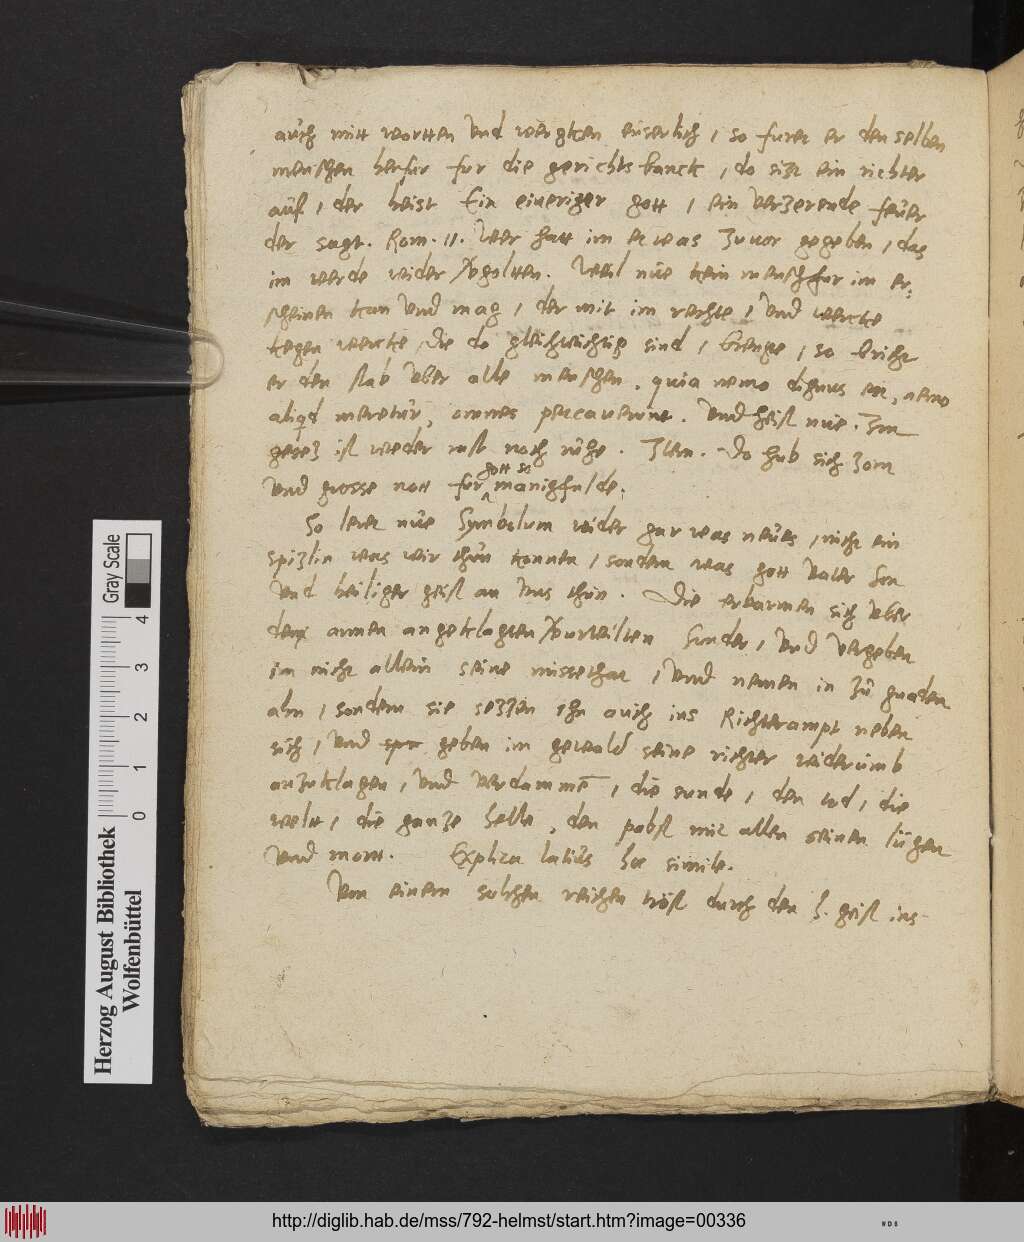 auch mitt wortten Vnd wergkcen eüserlich, so furet er den selben
menschen herfur fur die gerichts banck, do sizt ein richter
auf, der heist Ein eiueriger gott, ein Verzerende feüer
der sagt. Rom. 11. Wer hatt im etwas zuuor gegeben, das
im werde wider Vergoltten. Weil nüe kein mensch for im er:
scheinen kan Vnd mag, der mit im rechte, Vnd wercke
kegen wercke, die do gleichwichtig sind, brenge, so bricht
er den stab Vber alle menschen. quia nemo dignus est, nemo
aliqd meretur, omnes peccauerunt. Vnd heist nüe. Im
gesez ist weder rast noch rühe. Item. Do hub sich zorn
Vnd grosse nott fur gott so manichfalde.
So leret nüe Symbolum wider gar was neües, nicht ein
spizlin was wir thün konnen, sondern was gott Vater Son
Vnd heiliger geist an Vns thün. Die erbarmen sich Vber
den armen angeklagten Vorteilten Sunder, Vnd Vergeben
im nicht allein seine missethat, Vnnd nemen in zü gnaden
ahn, sondern sie sezzen ihn auch ins Richterampt neben
sich, Vnd geben im gewald seine richter widerümb
anzuklagen, Vnd Verdammē, die sunde, den tod, die
welt, die ganze helle, den pabst mit allen seinen lügen
Vnnd mort. Explica latiüs hoc simile.
Von einem solchen reichen tröst durch den h. geist ins
Herzog August Bibliothek
Wolfenbüttel
Gray Scale
0 1 2 3 4
http://diglib.hab.de/mss/792-helmst/start.htm?image=00336